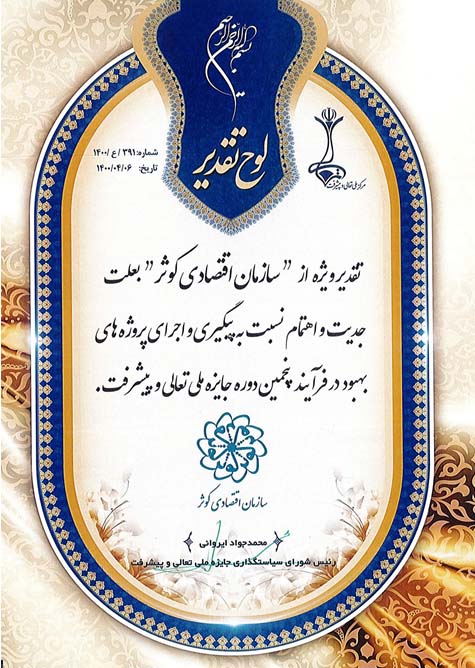 بسم الله الرحمن الرحیم
لوح تقدیر
شماره: ۳۹۱ / ع /۱۴۰۰
تاریخ: ۱۴۰۰/۰۴/۰۶
مرکز ملی تعالی و پیشرفت
تقدیر ویژه از "سازمان اقتصادی کوثر" بعلت
جدیت و اهتمام نسبت به پیگیری و اجرای پروژه های
بهبود در فرآیند پنجمین دوره جایزه ملی تعالی و پیشرفت.
سازمان اقتصادی کوثر
محمدجواد ایروانی
رئیس شورای سیاستگذاری جایزه ملی تعالی و پیشرفت